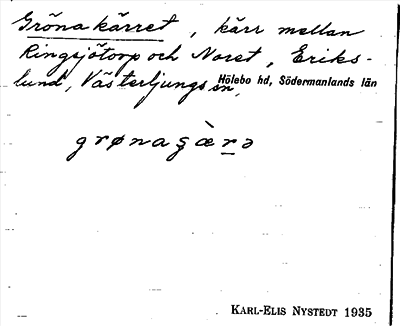 Gröna kärret, kärr mellan
Ringsjötorp och Noret, Eriks-
lund, Västerljungs sn, Hölebo hd, Södermanlands län
grønaʂæ̀rə
KARL-ELIS NYSTEDT 1935